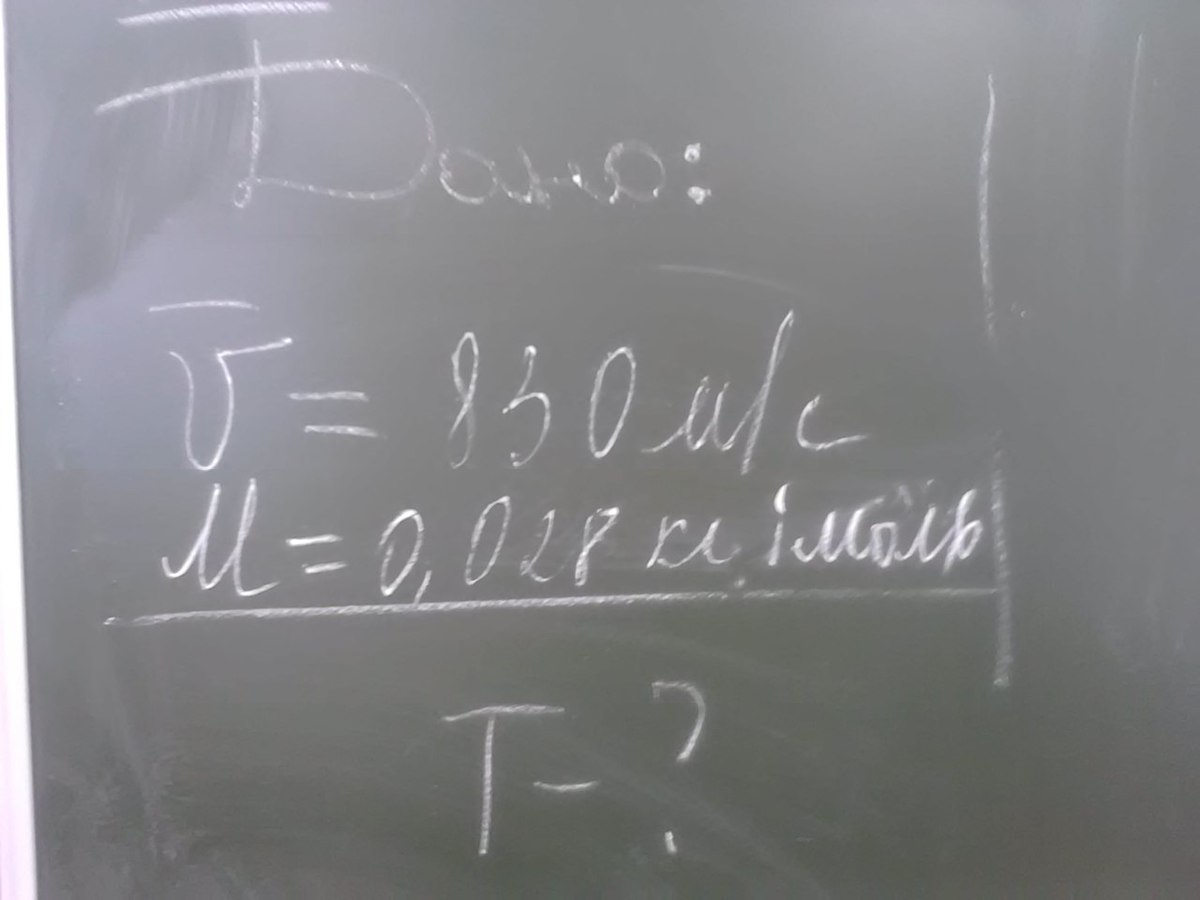 Дано:
v̄ = 830 м/с
M = 0,028 кг/моль
T - ?